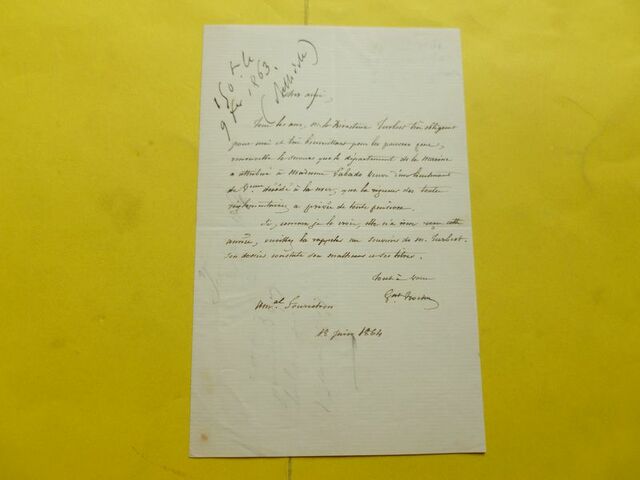 150 f. le
9 fév. 1863.
(Mathilde)
Cher ami,
Tous les ans, M. le Directeur Turbert bien obligeant
pour moi et bien bienveillant pour les pauvres gens,
renouvelle le secours que le département de la Marine
a attribué à Madame veuve d'un lieutenant
de Veau décédé à la mer, que la rigueur des textes
réglementaires a privée de toute pension.
Si, comme je le crois, elle n'a rien reçu cette
année, veuillez la rappeler au souvenir de M. Turbert.
Son dossier constate ses malheurs et ses titres.
Tout à vous
Gal Trochu
12 juin 1864